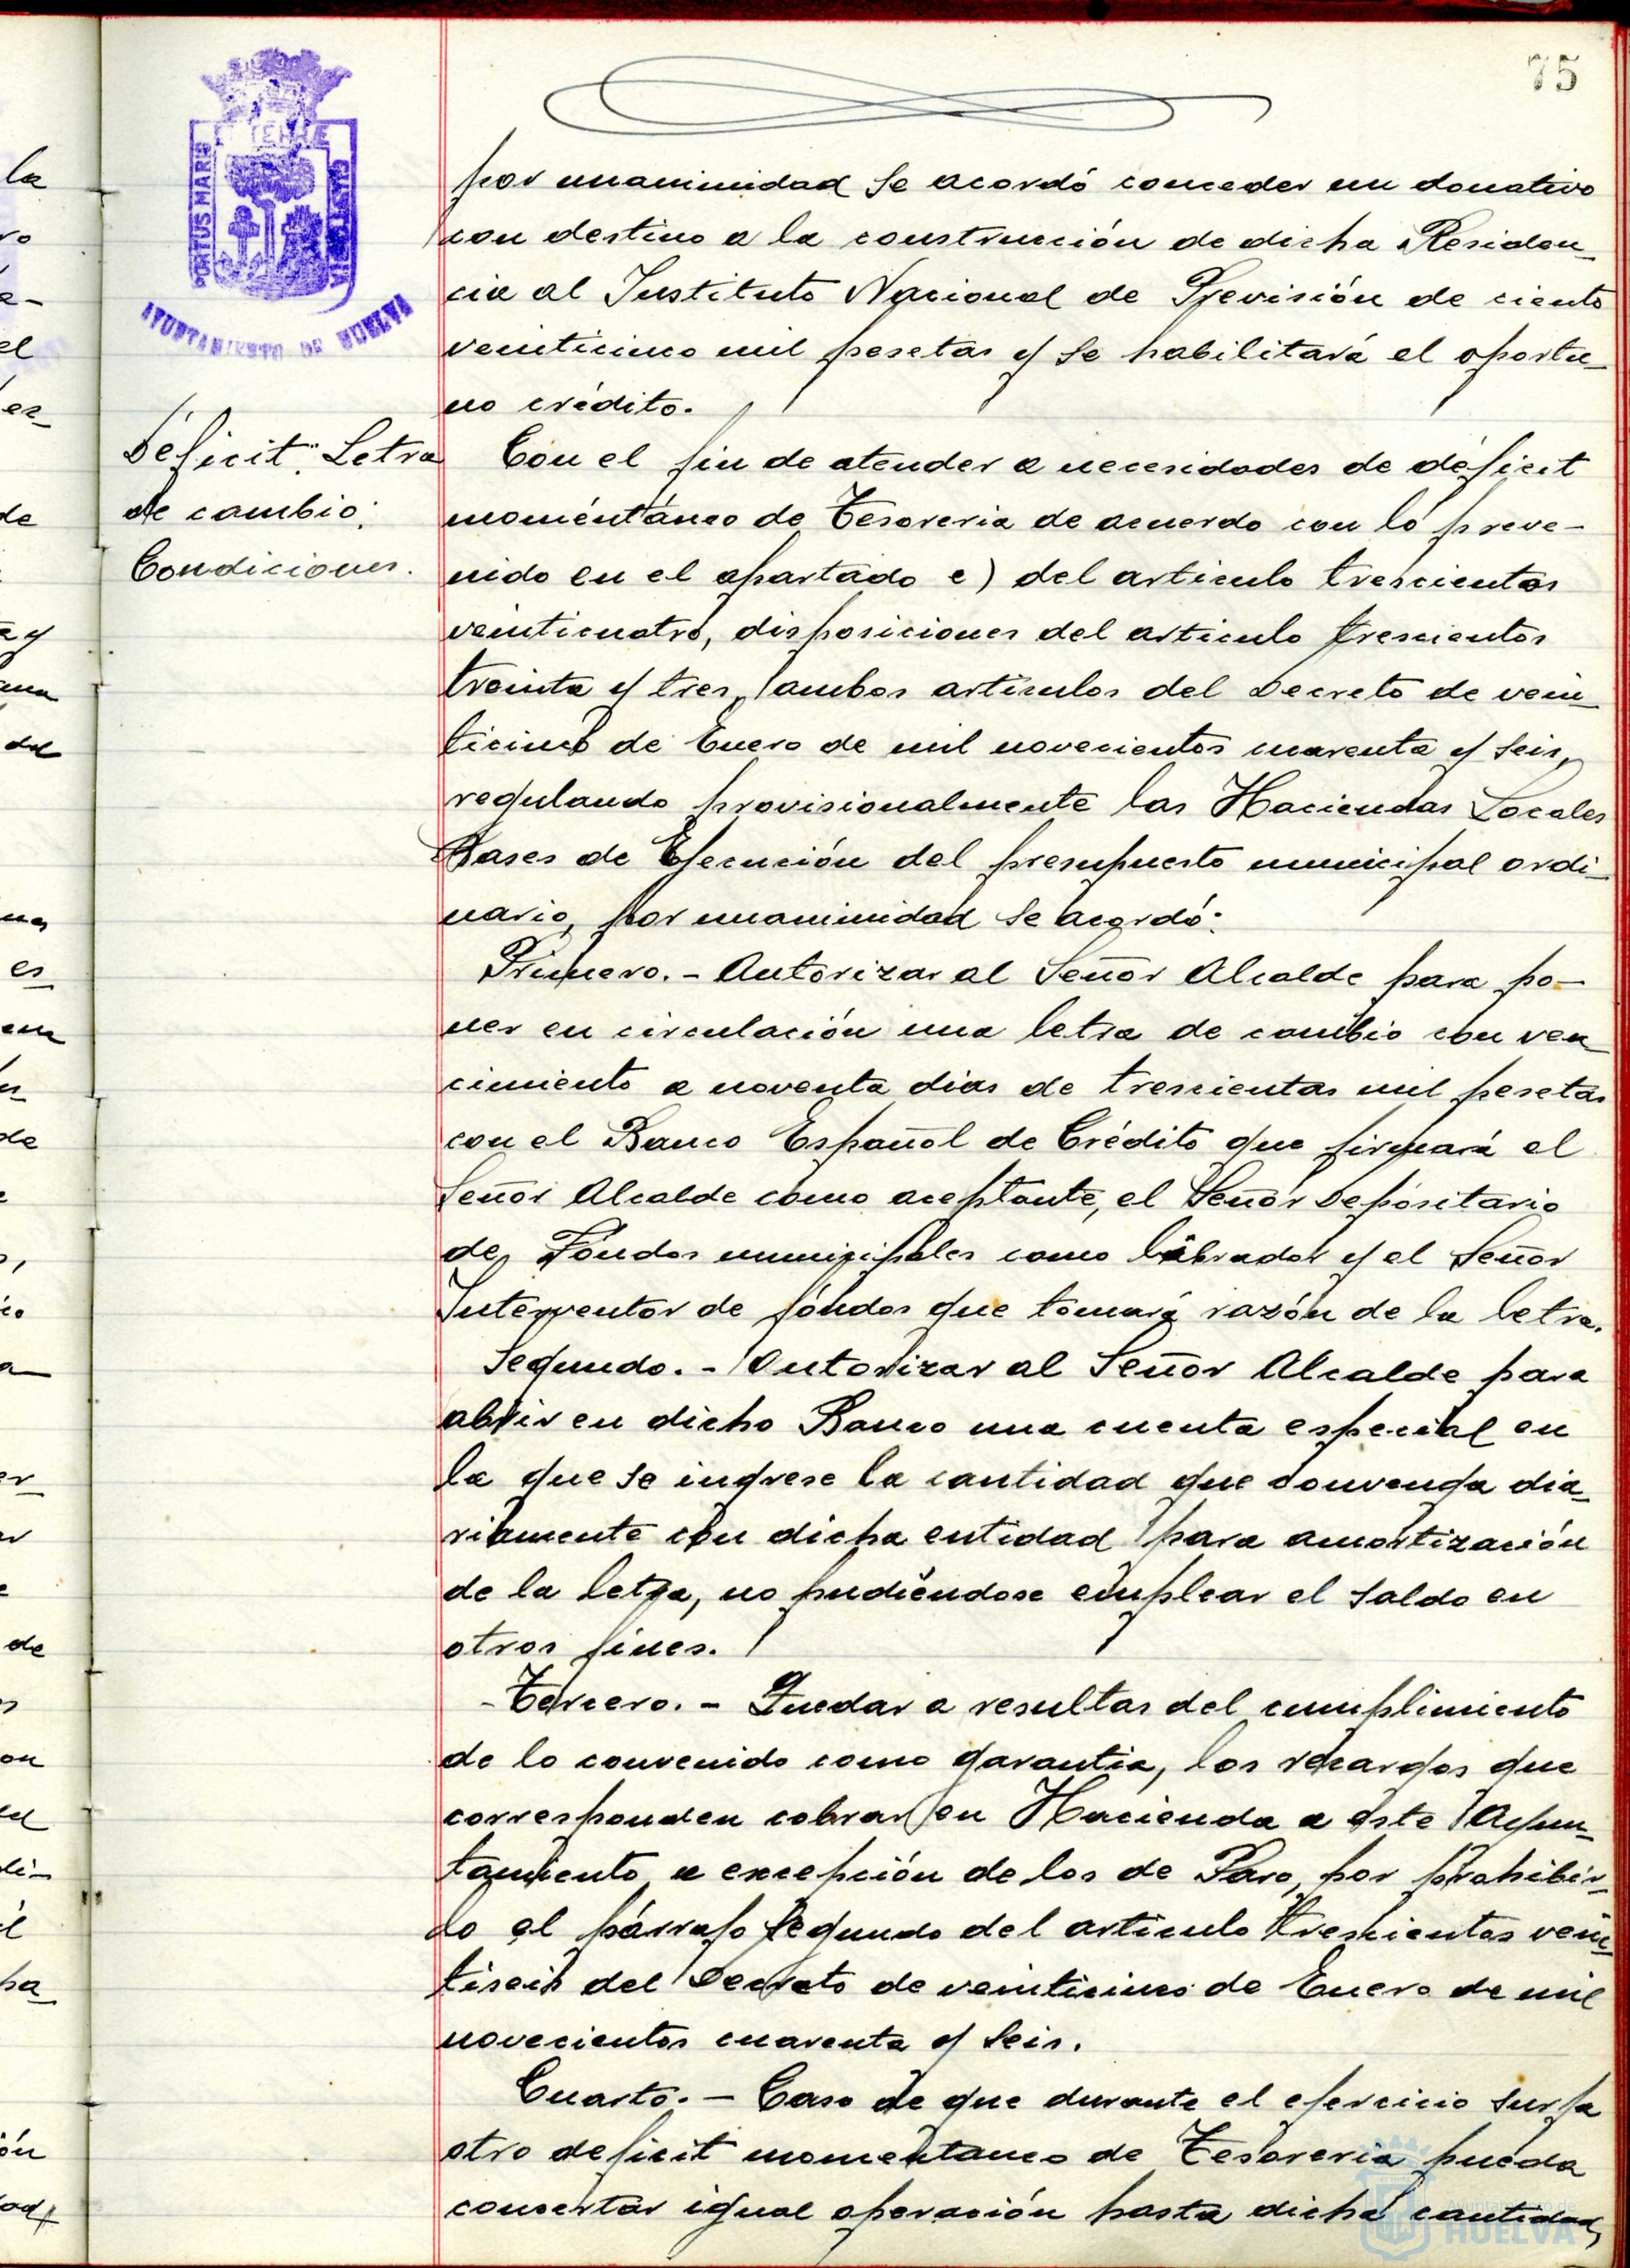 75
PORTUS MARIS
AYUNTAMIENTO DE HUELVA
por unanimidad se acordó conceder un donativo
con destino a la construcción de dicha Residen_
cia al Instituto Nacional de Previsión de ciento
veinticinco mil pesetas y se habilitará el oportu_
no crédito.
Déficit: Letra
de cambio:
Condiciones.
Con el fin de atender a necesidades de déficit
momentáneo de Tesoreria de acuerdo con lo preve-
nido en el apartado e) del articulo trescientos
veinticuatro, disposiciones del articulo trescientos
treinta y tres, ambos artículos del Decreto de vein_
ticinco de Enero de mil novecientos cuarenta y seis,
regulando provisionalmente las Haciendas Locales
Bases de Ejecución del presupuesto municipal ordi_
nario, por unanimidad se acordó:
Primero.- Autorizar al Señor Alcalde para po-
ner en circulación una letra de cambio con ven_
cimiento a noventa dias de trescientas mil pesetas
con el Banco Español de Crédito que firmará el
Señor Alcalde como aceptante, el Señor Depositario
de Fondos municipales como librador y el Señor
Interventor de fondos que tomará razón de la letra.
Segundo.- Autorizar al Señor Alcalde para
abrir en dicho Banco una cuenta especial en
la que se ingrese la cantidad que convenga dia_
riamente con dicha entidad para amortización
de la letra, no pudiéndose emplear el saldo en
otros fines.
-Tercero.- Quedar a resultas del cumplimiento
de lo convenido como garantia, los recargos que
corresponden cobrar en Hacienda a este Ayun_
tamiento a excepción de los de Paro, por prohibir_
lo el párrafo segundo del articulo trescientos vein_
tiseis del Decreto de veinticinco de Enero de mil
novecientos cuarenta y seis.
Cuarto.- Caso de que durante el ejercicio surja
otro deficit momentaneo de Tesoreria pueda
concertar igual operación hasta dicha cantidad,
Ayuntamiento de
HUELVA